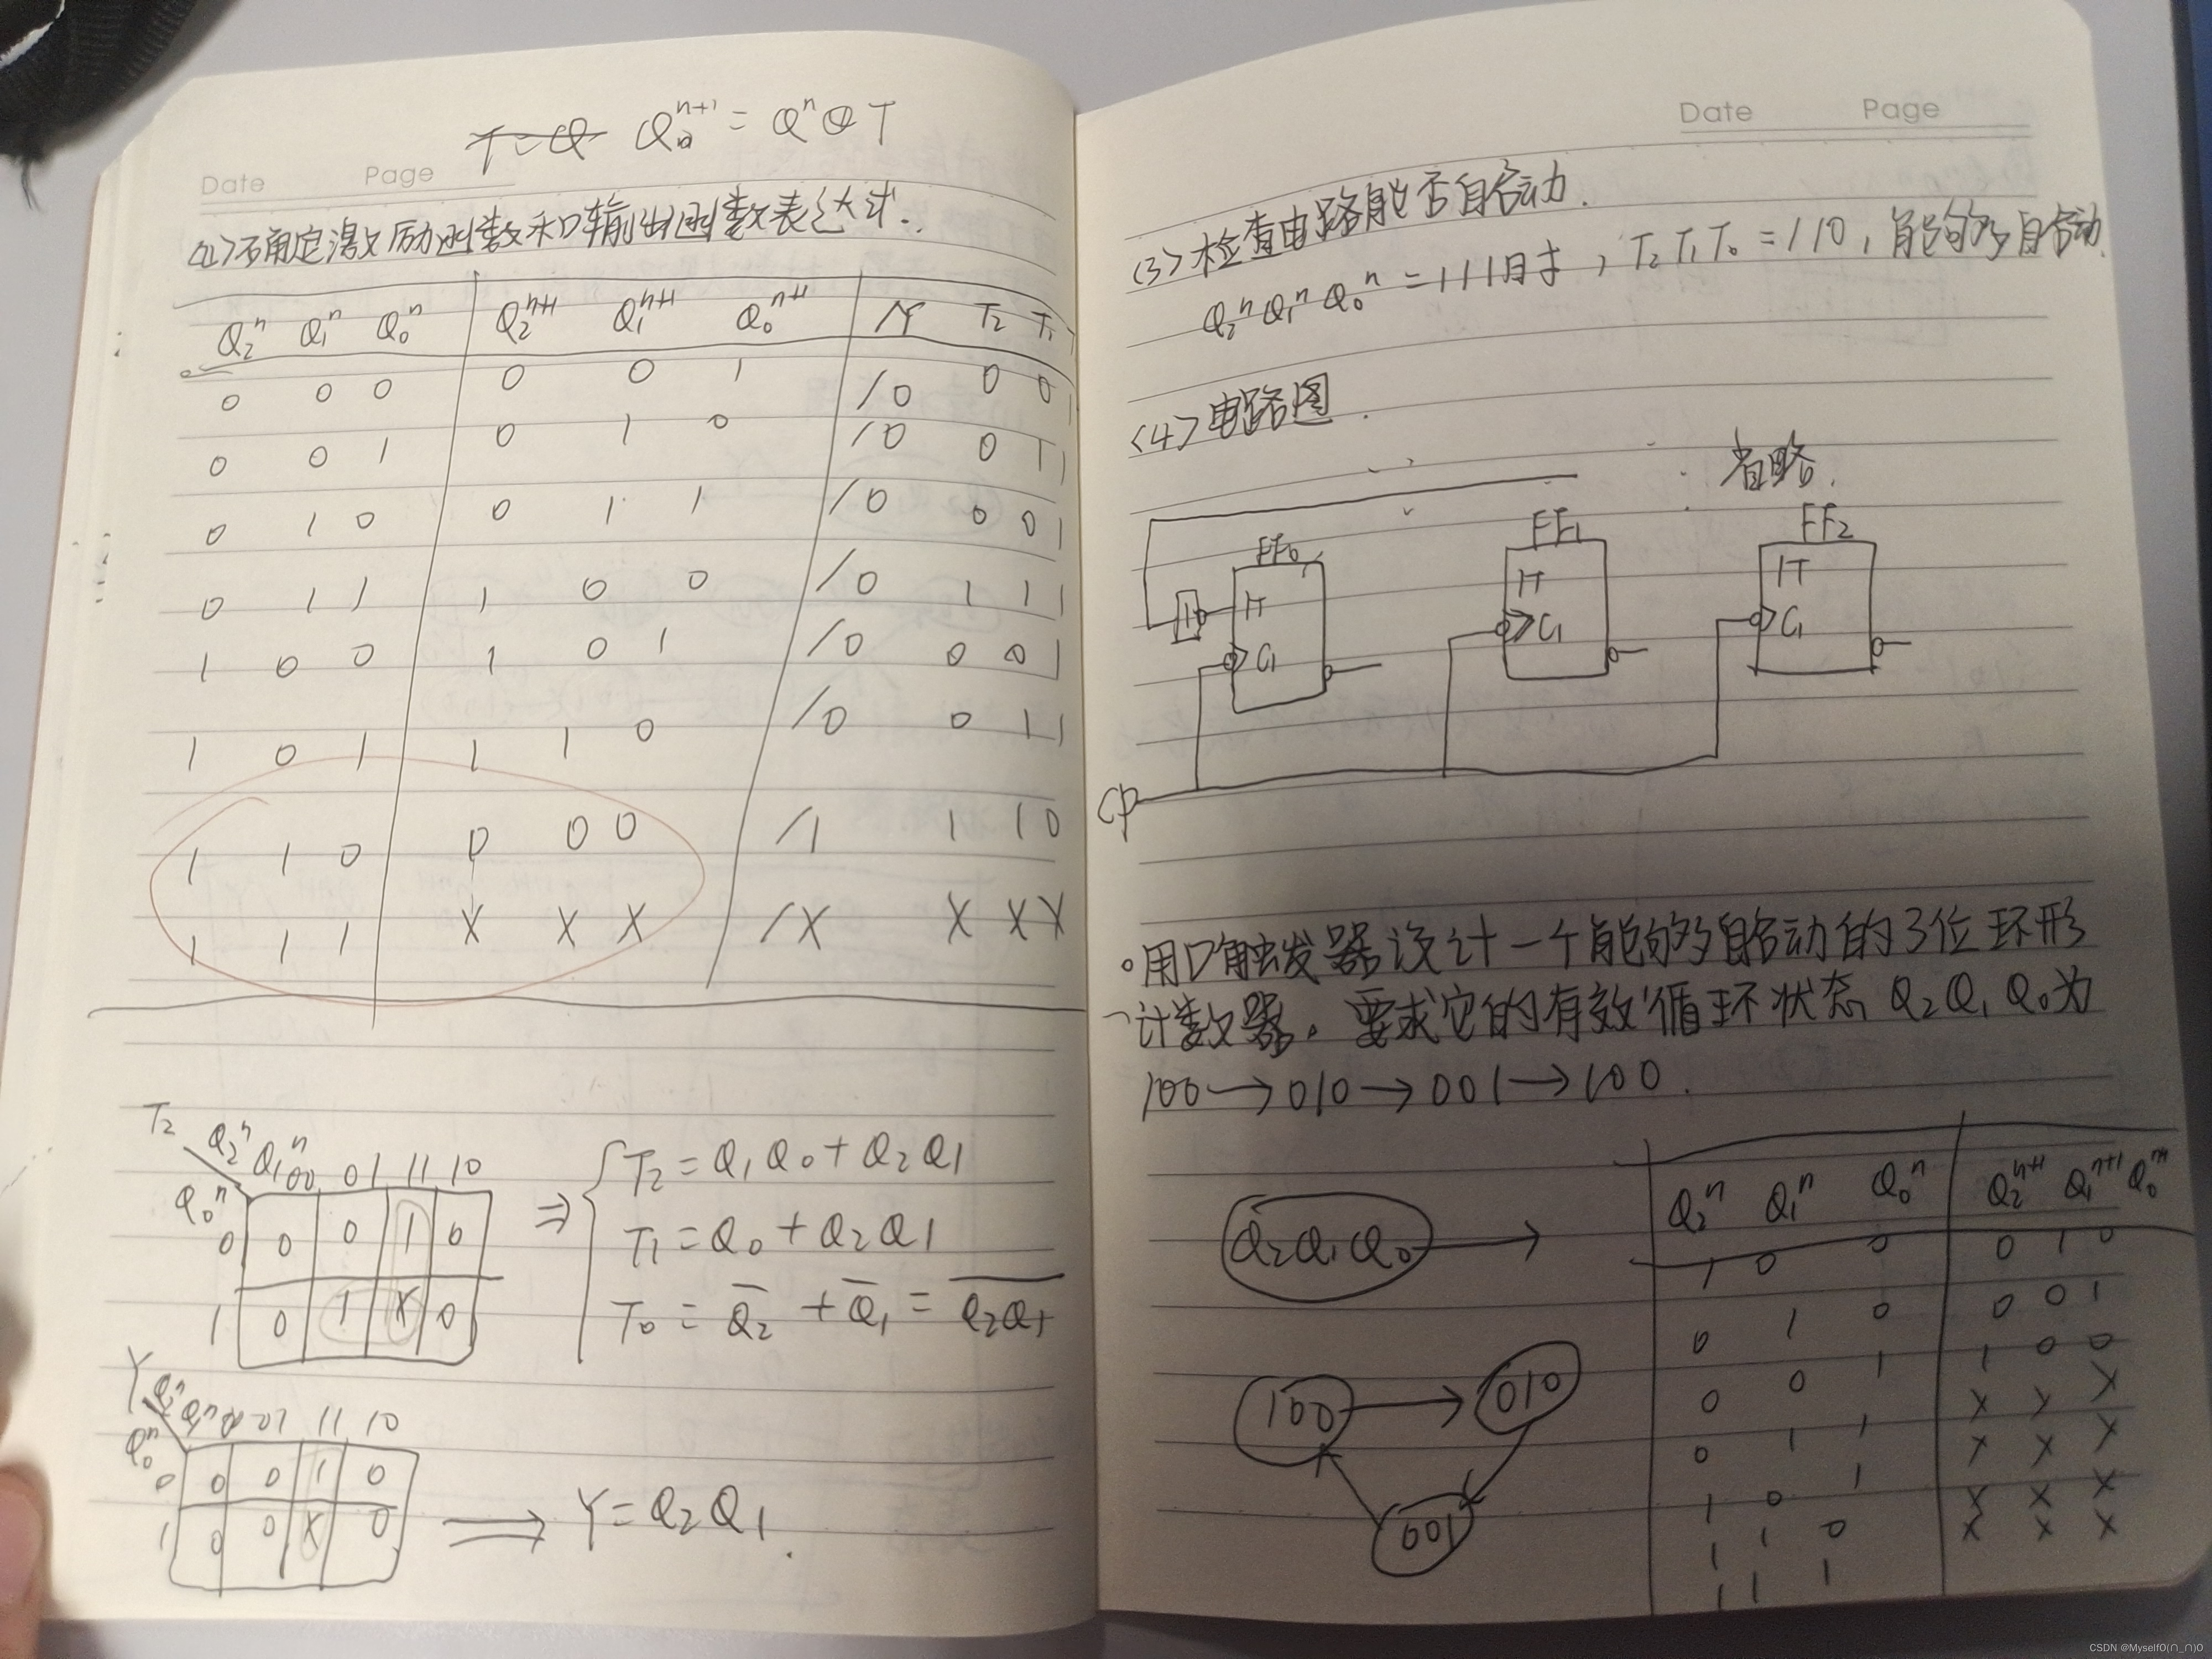 T=Q Q₀ⁿ⁺¹ = Qⁿ⊕T
Date Page
(2)确定激励函数和输出函数表达式.
Q₂ⁿ Q₁ⁿ Q₀ⁿ Q₂ⁿ⁺¹ Q₁ⁿ⁺¹ Q₀ⁿ⁺¹ /Y T₂ T₁
0 0 0 0 0 1 /0 0 0 1
0 0 1 0 1 0 /0 0 1 1
0 1 0 0 1 1 /0 0 0 1
0 1 1 1 0 0 /0 1 1 1
1 0 0 1 0 1 /0 0 0 1
1 0 1 1 1 0 /0 0 1 1
1 1 0 0 0 0 /1 1 1 0
1 1 1 X X X /X X X X
T₂
Q₂ⁿ Q₁ⁿ 00 01 11 10
Q₀ⁿ
0 0 0 1 0
1 0 1 X 0
⇒ { T₂ = Q₁Q₀ + Q₂Q₁
T₁ = Q₀ + Q₂Q₁
T₀ = Q̅₂ + Q̅₁ = Q̅₂̅Q̅₁̅
Y
Q₂ⁿ Q₁ⁿ 00 01 11 10
Q₀ⁿ
0 0 0 1 0
1 0 0 X 0
⟹ Y = Q₂Q₁.
Date Page
(3)检查电路能否自启动.
Q₂ⁿQ₁ⁿQ₀ⁿ = 111时, T₂T₁T₀ = 110, 能够自启动.
(4)电路图.
省略.
FF₀ FF₁ FF₂
1 1T 1T 1T
C₁ C₁ C₁
CP
。用D触发器设计一个能够自启动的3位环形
计数器。要求它的有效循环状态Q₂Q₁Q₀为
100→010→001→100.
Q₂Q₁Q₀ →
100 → 010
001
Q₂ⁿ Q₁ⁿ Q₀ⁿ Q₂ⁿ⁺¹ Q₁ⁿ⁺¹ Q₀ⁿ⁺¹
1 0 0 0 1 0
0 1 0 0 0 1
0 0 1 1 0 0
0 1 1 X X X
1 0 1 X X X
1 1 0 X X X
1 1 1 X X X
CSDN @MyselfO(∩_∩)O